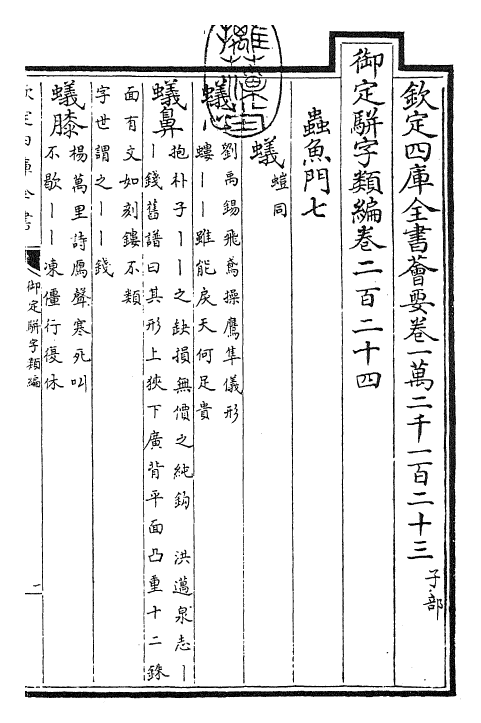 欽定四庫全書薈要卷一萬二千一百二十三 子部
御定駢字類編卷二百二十四
蟲魚門七
蟻 螘同
蟻心 劉禹錫飛鳶操鷹隼儀形
螻丨丨雖能戾天何足貴
蟻鼻 抱朴子丨丨之缺損無價之純鈎 洪邁泉志丨
丨錢舊譜曰其形上狹下廣背平面凸重十二銖
面有文如刻鏤不類
字世謂之丨丨錢
蟻膝 楊萬里詩厲聲寒死叫
不歇丨丨凍僵行復休
欽定四庫全書
御定駢字類編
二